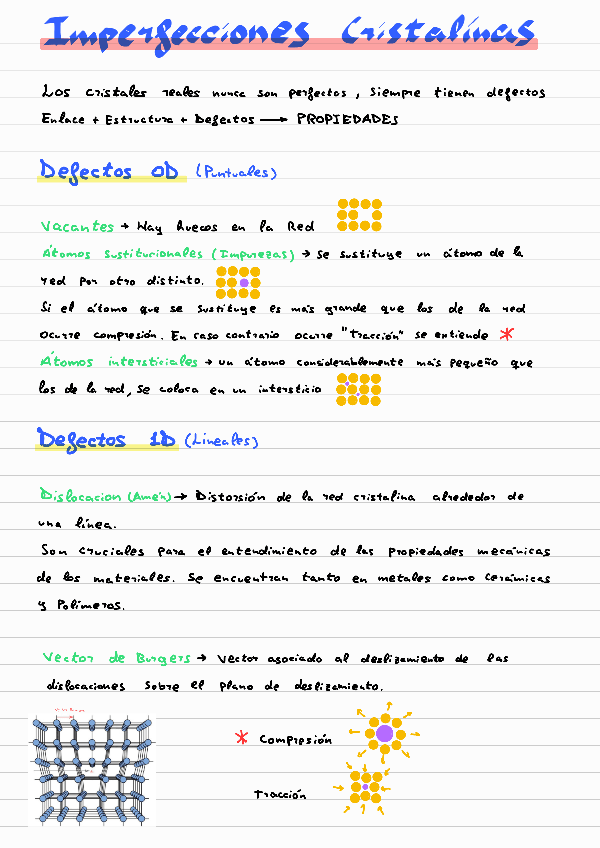 Imperfecciones Cristalinas
Los cristales reales nunca son perfectos, Siempre tienen defectos
Enlace + Estructura + Defectos → PROPIEDADES
Defectos 0D (Puntuales)
Vacantes → Hay huecos en la Red
Átomos Sustitucionales (Impurezas) → Se sustituye un átomo de la
red por otro distinto.
Si el átomo que se sustituye es más grande que los de la red
ocurre compresión. En caso contrario ocurre "Tracción" se extiende *
Átomos intersticiales → un átomo considerablemente más pequeño que
los de la red, Se coloca en un intersticio
Defectos 1D (Lineales)
→ Distorsión de la red cristalina alrededor de
una línea.
Son cruciales para el entendimiento de las propiedades mecánicas
de los materiales. Se encuentran tanto en metales como Cerámicas
y Polímeros.
Vector de Burgers → Vector asociado al deslizamiento de las
dislocaciones sobre el plano de deslizamiento.
* Compresión
Tracción